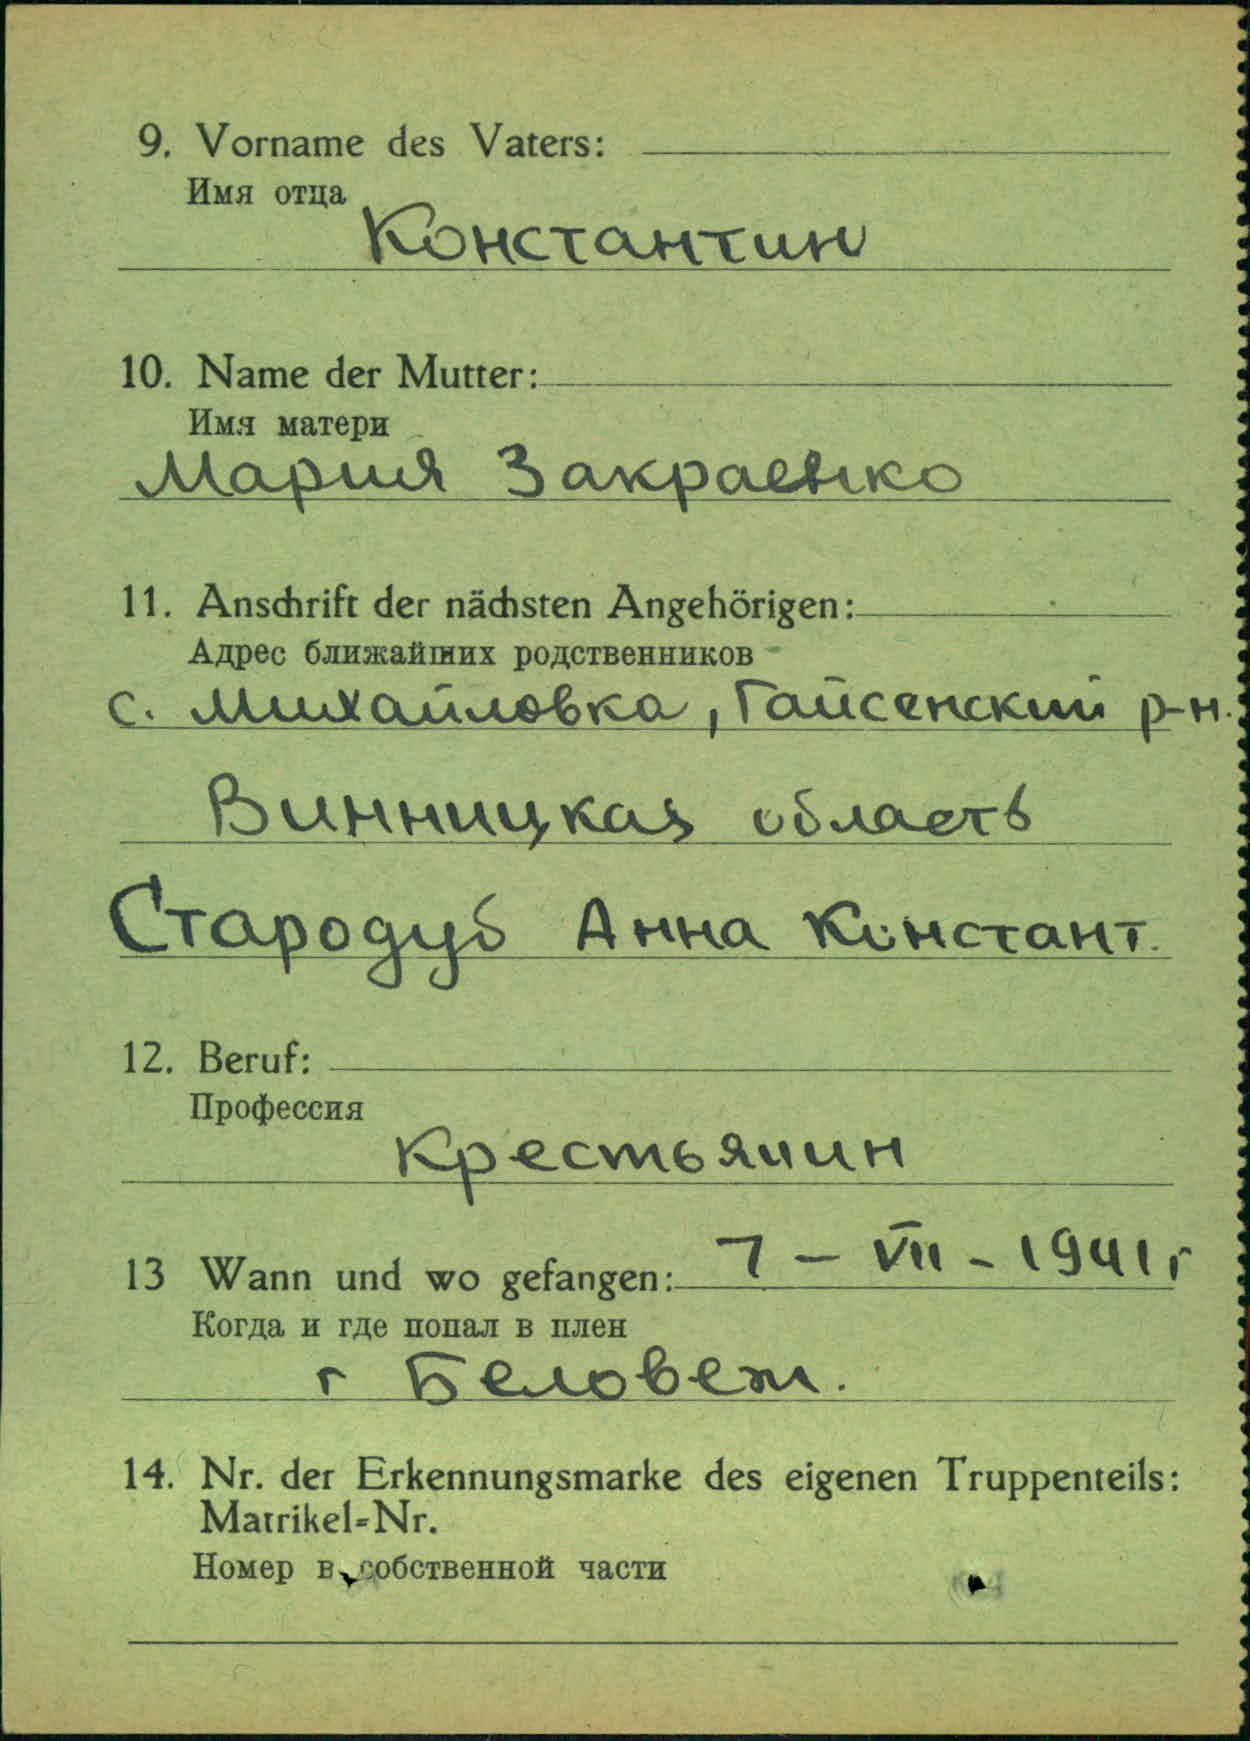 9. Vorname des Vaters:
Имя отца
Константин
10. Name der Mutter:
Имя матери
Мария Закраенко
11. Anschrift der nächsten Angehörigen:
Адрес ближайших родственников
с. Михайловка, Гайсенский р-н.
Винницкая область
Стародуб Анна Констант.
12. Beruf:
Профессия
Крестьянин
13 Wann und wo gefangen: 7 – VII - 1941 г
Когда и где попал в плен
г Беловеж.
14. Nr. der Erkennungsmarke des eigenen Truppenteils:
Matrikel-Nr.
Номер в собственной части